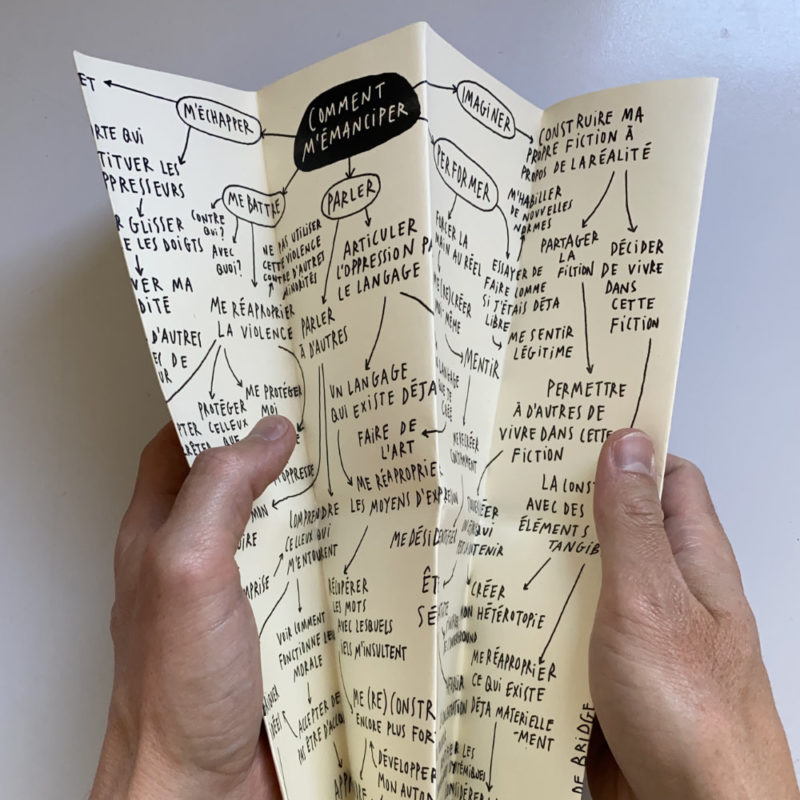 ET
M'ÉCHAPPER
COMMENT
M'ÉMANCIPER
IMAGINER
CONSTRUIRE MA
PROPRE FICTION À
PROPOS DE LA RÉALITÉ
RTE QUI
TITUER LES
PPRESSEURS
R GLISSER
E LES DOIGTS
VER MA
DITÉ
D'AUTRES
EC DE
UR
ME BATTRE
CONTRE
QUI?
AVEC
QUOI?
NE PAS UTILISER
CETTE VIOLENCE
CONTRE D'AUTRES
MINORITÉS
ME RÉAPROPRIER
LA VIOLENCE
PROTÉGER
CELLEUX
QUE
ME PROTÉGER
MOI
PTER
RÊTER
M'OPPRESSE
MIN
OIRE
MPRISE
COMPRENDRE
CELLEUX QUI
M'ENTOURENT
VOIR COMMENT
FONCTIONNE LEUR
MORALE
ACCEPTER DE
PAS ÊTRE D'ACCOR
PARLER
PARLER
À D'AUTRES
ARTICULER
L'OPPRESSION PA
LE LANGAGE
UN LANGAGE
QUI EXISTE DÉJA
FAIRE DE
L'ART
ME RÉAPROPRIE
LES MOYENS D'EXPRESSION
ME DÉSIDENTIFIER
RÉCUPÉRER
LES MOTS
AVEC LESQUELS
IELS M'INSULTENT
ME (RE)CONSTR
ENCORE PLUS FOR
DÉVELOPPER
MON AUTO
PERFORMER
FORCER LA
MAIN AU RÉEL
ME (RE)CRÉER
MOI MÊME
MENTIR
UN LANGAGE
ME RECRÉER
CONSTAMMENT
ESSAYER DE
FAIRE COMME
SI J'ÉTAIS DÉJA
LIBRE
M'HABILLER
DE NOUVELLES
NORMES
ME SENTIR
LÉGITIME
PARTAGER
LA
FICTION
DÉCIDER
DE VIVRE
DANS
CETTE
FICTION
PERMETTRE
À D'AUTRES DE
VIVRE DANS CETTE
FICTION
LA CONST
AVEC DES
ÉLÉMENTS
TANGIB
CRÉER
MON HÉTÉROTOPIE
ME RÉAPROPRIER
CE QUI EXISTE
DÉJA MATERIELLE
-MENT
DE BRIDGE